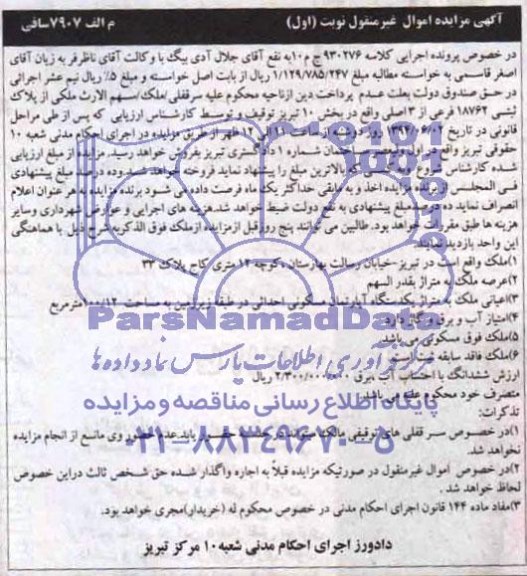 آگهی مزایده اموال غیرمنقول نوبت (اول) م الف ۷۹۰۷سافی
در خصوص پرونده اجرایی کلاسه ۹۳۰۲۷۶ ج م ۱۰به نفع آقای جلال آدی بیگ با وکالت آقای ناظرفر به زیان آقای
اصغر قاسمی به خواسته مطالبه مبلغ ۱/۱۲۹/۷۸۵/۲۴۷ ریال از بابت اصل خواسته و مبلغ ۵٪ ریال نیم عشر اجرائی
در حق صندوق دولت بعلت عدم پرداخت دین ازناحیه محکوم علیه سرقفلی/ملک/سهم الارث ملکی از پلاک
ثبتی ۱۸۷۶۲ فرعی از ۳ اصلی واقع در بخش ۱۰ تبریز توقیف و توسط کارشناس ارزیابی که پس از طی مراحل
قانونی در تاریخ روز دوشنبه از ساعت الی ۱۲ ظهر از طریق مزایده در اجرای احکام مدنی شعبه ۱۰
حقوقی تبریز واقع در شماره ۱ دادگستری تبریز بفروش خواهد رسید. مزایده از مبلغ ارزیابی
شده کارشناس شروع که بالاترین مبلغ را پیشنهاد نماید فروخته خواهد شد ده درصد مبلغ پیشنهادی
فی المجلس از برنده مزایده اخذ و به مابقی حداکثر یک ماه فرصت داده می شود برنده مزایده به هر عنوان اعلام
انصراف نماید ده درصد مبلغ پیشنهادی به نفع دولت ضبط خواهد شد.هزینه های اجرایی و عوارض شهرداری وسایر
هزینه ها طبق مقررات خواهد بود. طالبین می توانند پنج روزقبل ازمزایده ازملک فوق الذکر به شرح ذیل با هماهنگی
این واحد بازدید نمایند.
۱)ملک واقع است در تبریز-خیابان رسالت بهارستان ،کوچه ۱۲متری کاج پلاک ۳۳
۲)عرصه ملک به متراژ بقدر السهم
۳)اعیانی ملک به متراژ یکدستگاه آپارتمان مسکونی احداثی در طبقه زیرزمین به مساحت ۱۰۰/۱۲مترمربع
۴)امتیاز آب و برق و گاز دارد.
۵)ملک فوق مسکونی می باشد.
۶)ملک فاقد سابقه ثبت است
ارزش ششدانگ با احتساب آب ،برق ۲/۳۰۰/۰۰۰/۰۰۰ ریال
متصرف خود محکوم علیه می باشد.
تذکرات:
۱)در خصوص سرقفلی های توقیفی مالک میتواند در جلسه حضور یابد عدم حضور وی مانع از انجام مزایده
نخواهد شد.
۲)در خصوص اموال غیرمنقول در صورتیکه مزایده قبلاً به اجاره واگذار شده حق شخص ثالث دراین خصوص
لحاظ خواهد شد .
۳)مفاد ماده ۱۴۴ قانون اجرای احکام مدنی در خصوص محکوم له (خریدار)مجری خواهد بود.
دادورز اجرای احکام مدنی شعبه ۱۰ مرکز تبریز
ParsNamadData
فرآوری اطلاعات پارس نماد داده ها
پایگاه اطلاع رسانی مناقصه و مزایده
۰۲۱-۸۸۳۴۹۶۷۰-۵